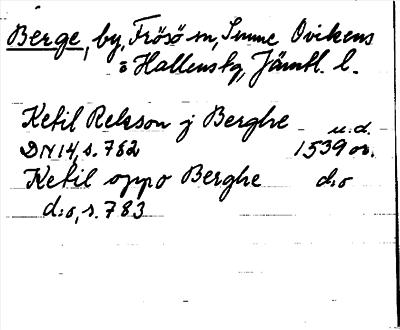 Berge, by, Frösö sn, Sunne Ovikens
o Hallens tg, Jämtl. l.
Ketil Relsson j Berghe u.d.
DN 14, s. 782 1539 or.
Ketil oppo Berghe d:o
d:o, s. 783